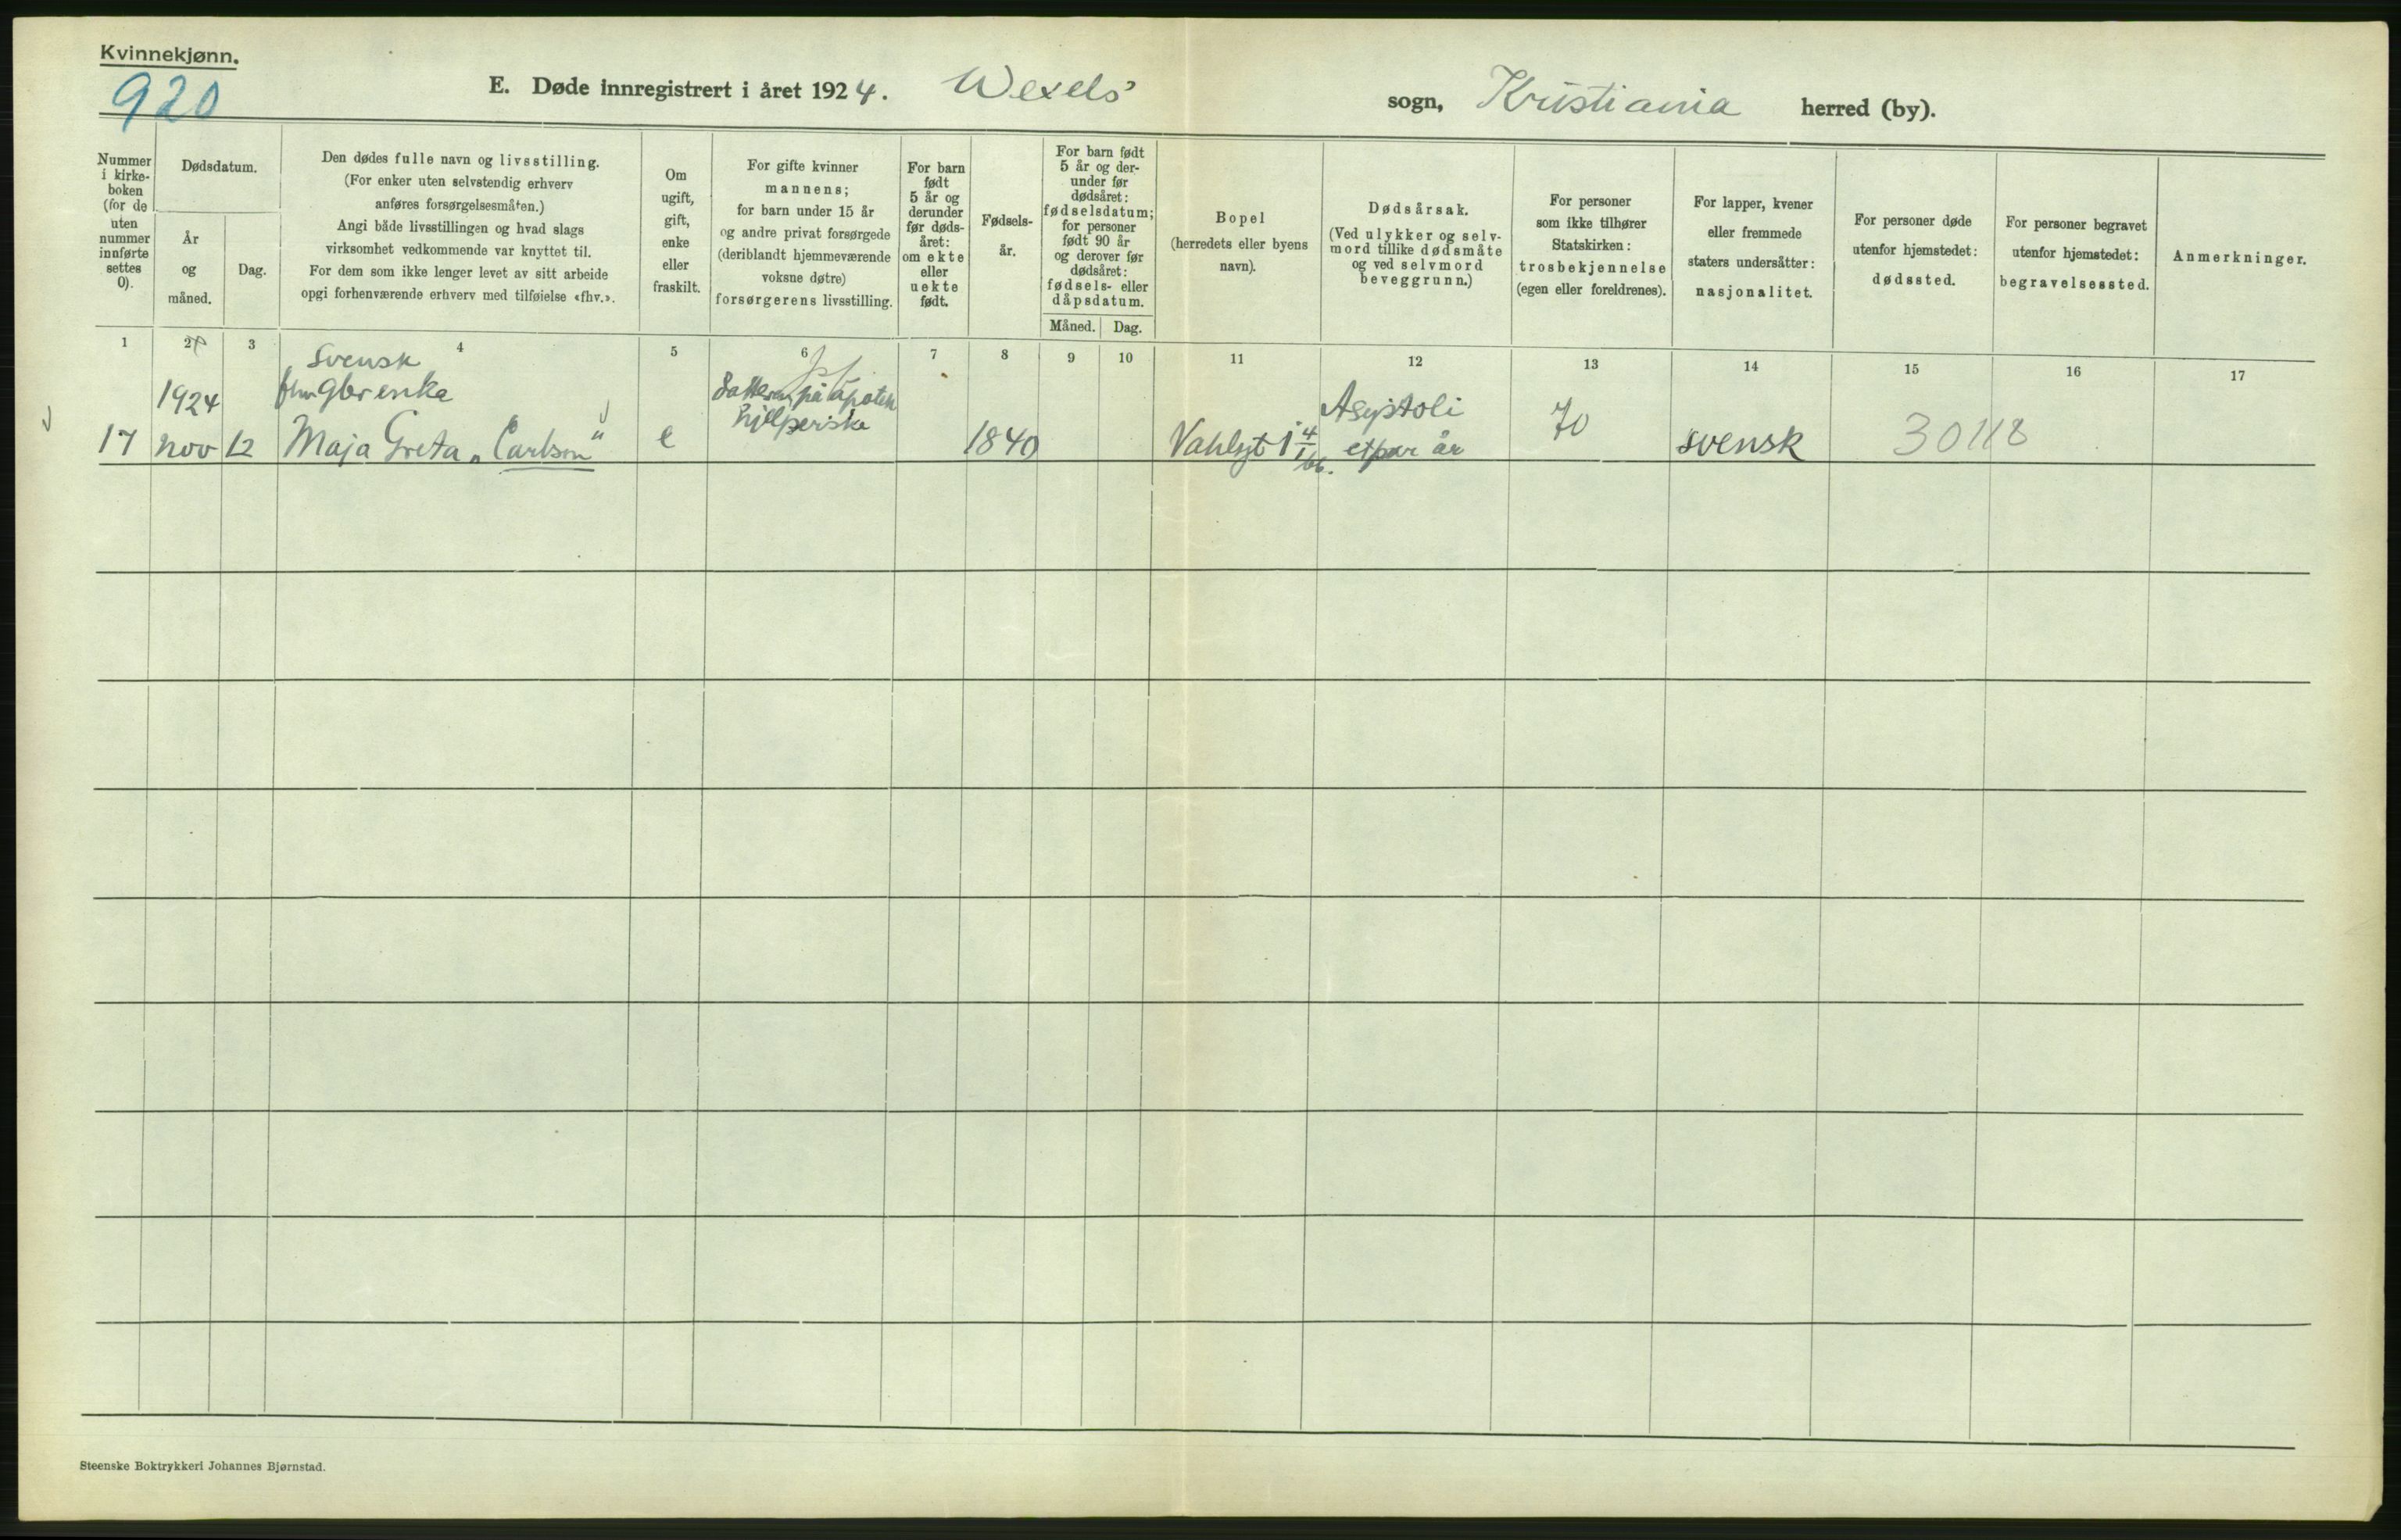 Kvinnekjønn.
920
E. Døde innregistrert i året 1924. Wexels' sogn, Kristiania herred (by).
Nummer i kirke- boken (for de uten nummer innførte settes 0).
Dødsdatum.
År og måned.
Dag.
Den dødes fulle navn og livsstilling.
(For enker uten selvstendig erhverv
anføres forsørgelsesmåten.)
Angi både livsstillingen og hvad slags
virksomhet vedkommende var knyttet til.
For dem som ikke lenger levet av sitt arbeide
opgi forhenværende erhverv med tilføielse «fhv.».
Om ugift, gift, enke eller fraskilt.
For gifte kvinner
mannens;
for barn under 15 år
og andre privat forsørgede
(deriblandt hjemmeværende
voksne døtre)
forsørgerens livsstilling.
For barn født 5 år og derunder før døds- året: om ekte eller uekte født.
Fødsels- år.
For barn født
5 år og der-
under før
dødsåret:
fødselsdatum;
for personer
født 90 år
og derover før
dødsåret:
fødsels- eller
dåpsdatum.
Måned. Dag.
Bopel
(herredets eller byens
navn).
Dødsårsak.
(Ved ulykker og selv-
mord tillike dødsmåte
og ved selvmord
beveggrunn.)
For personer
som ikke tilhører
Statskirken:
trosbekjennelse
(egen eller foreldrenes).
For lapper, kvener
eller fremmede
staters undersåtter:
nasjonalitet.
For personer døde
utenfor hjemstedet:
dødssted.
For personer begravet
utenfor hjemstedet:
begravelsessted.
Anmerkninger.
1 2 3 4 5 6 7 8 9 10 11 12 13 14 15 16 17
svensk
1924
på apotek
Asystoli
17 nov 12 Maja Greta „Carlson" e 1840 etpar år 70 svensk 30118
Steenske Boktrykkeri Johannes Bjørnstad.